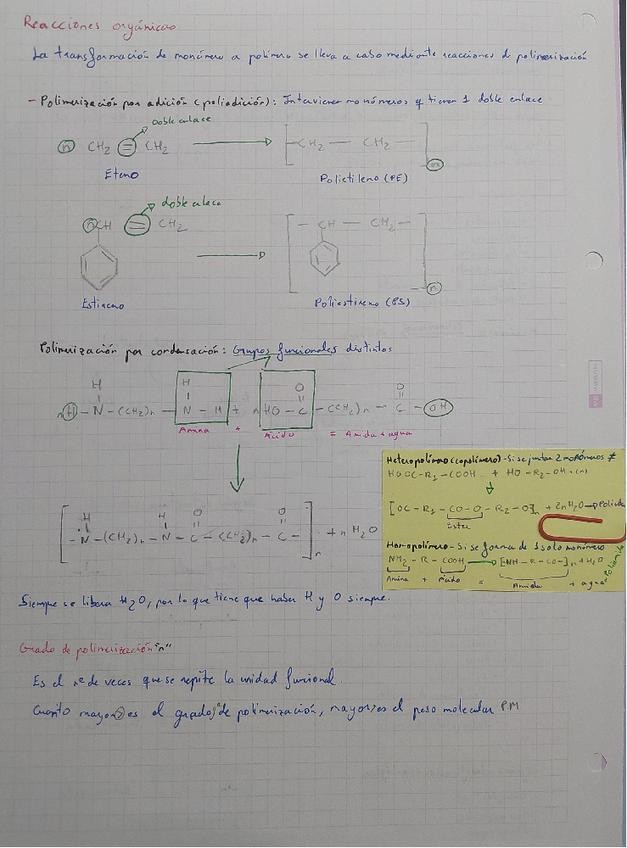 Reacciones orgánicas
La transformación de monómero a polímero se lleva a cabo mediante reacciones de polimerización
- Polimerización por adición (poliadición): Intervienen monómeros q tienen 1 doble enlace
doble enlace
n CH₂ = CH₂ → [-CH₂ — CH₂ -]n
Eteno
Polietileno (PE)
doble enlace
n CH = CH₂ → [- CH — CH₂ -]n
Estireno
Poliestireno (PS)
Polimerización por condensación: Grupos funcionales distintos
H H O O
n H - N - (CH₂)n - N - H + n HO - C - (CH₂)n - C - OH
Amina + Ácido = Amida + agua
H H O O
[- N - (CH₂)n - N - C - (CH₂)n - C -]n + n H₂O
Siempre se libera H₂O, por lo que tiene que haber H y O siempre.
Heteropolímero (copolímero) - Si se juntan 2 monómeros ≠
HOOC-R₁-COOH + HO-R₂-OH
[OC-R₁-CO-O-R₂-O]n + 2n H₂O →
Éster
Homopolímero - Si se forma de 1 solo monómero
NH₂ - R - COOH → [NH-R-CO-]n + H₂O
Amina + Ácido = Amida + agua
Grado de polimerización "n"
Es el nº de veces que se repite la unidad funcional.
Cuanto mayor es el grado de polimerización, mayor es el peso molecular PM